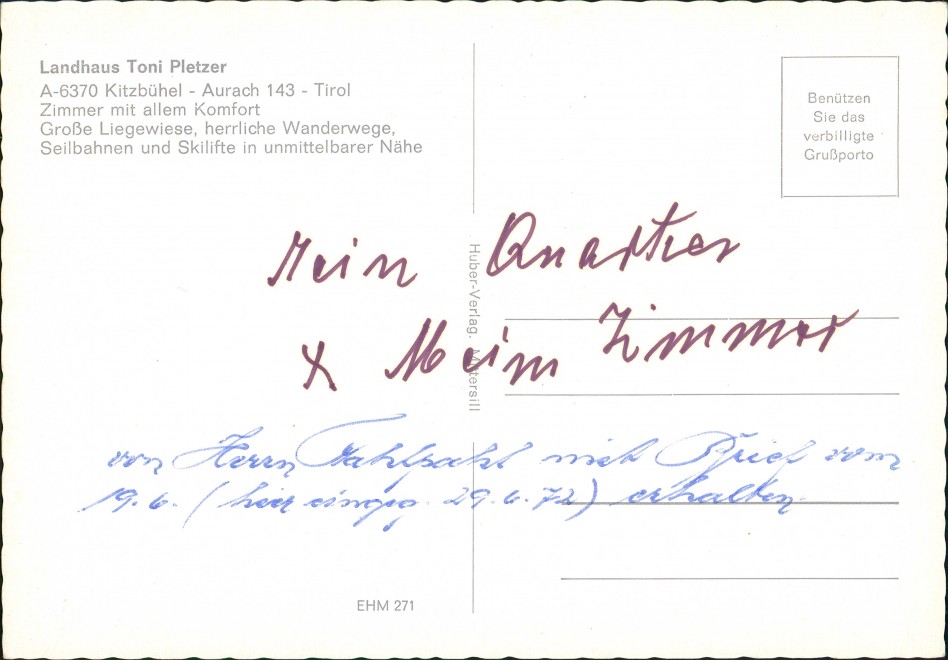 Landhaus Toni Pletzer
A-6370 Kitzbühel - Aurach 143 - Tirol
Zimmer mit allem Komfort
Große Liegewiese, herrliche Wanderwege,
Seilbahnen und Skilifte in unmittelbarer Nähe
Benützen
Sie das
verbilligte
Grußporto
Huber-Verlag, Mittersill
Mein Quartier
x Mein Zimmer
von Herrn mit Brief vom
19.6. (hier eingeg. 29.6.72) erhalten.
EHM 271